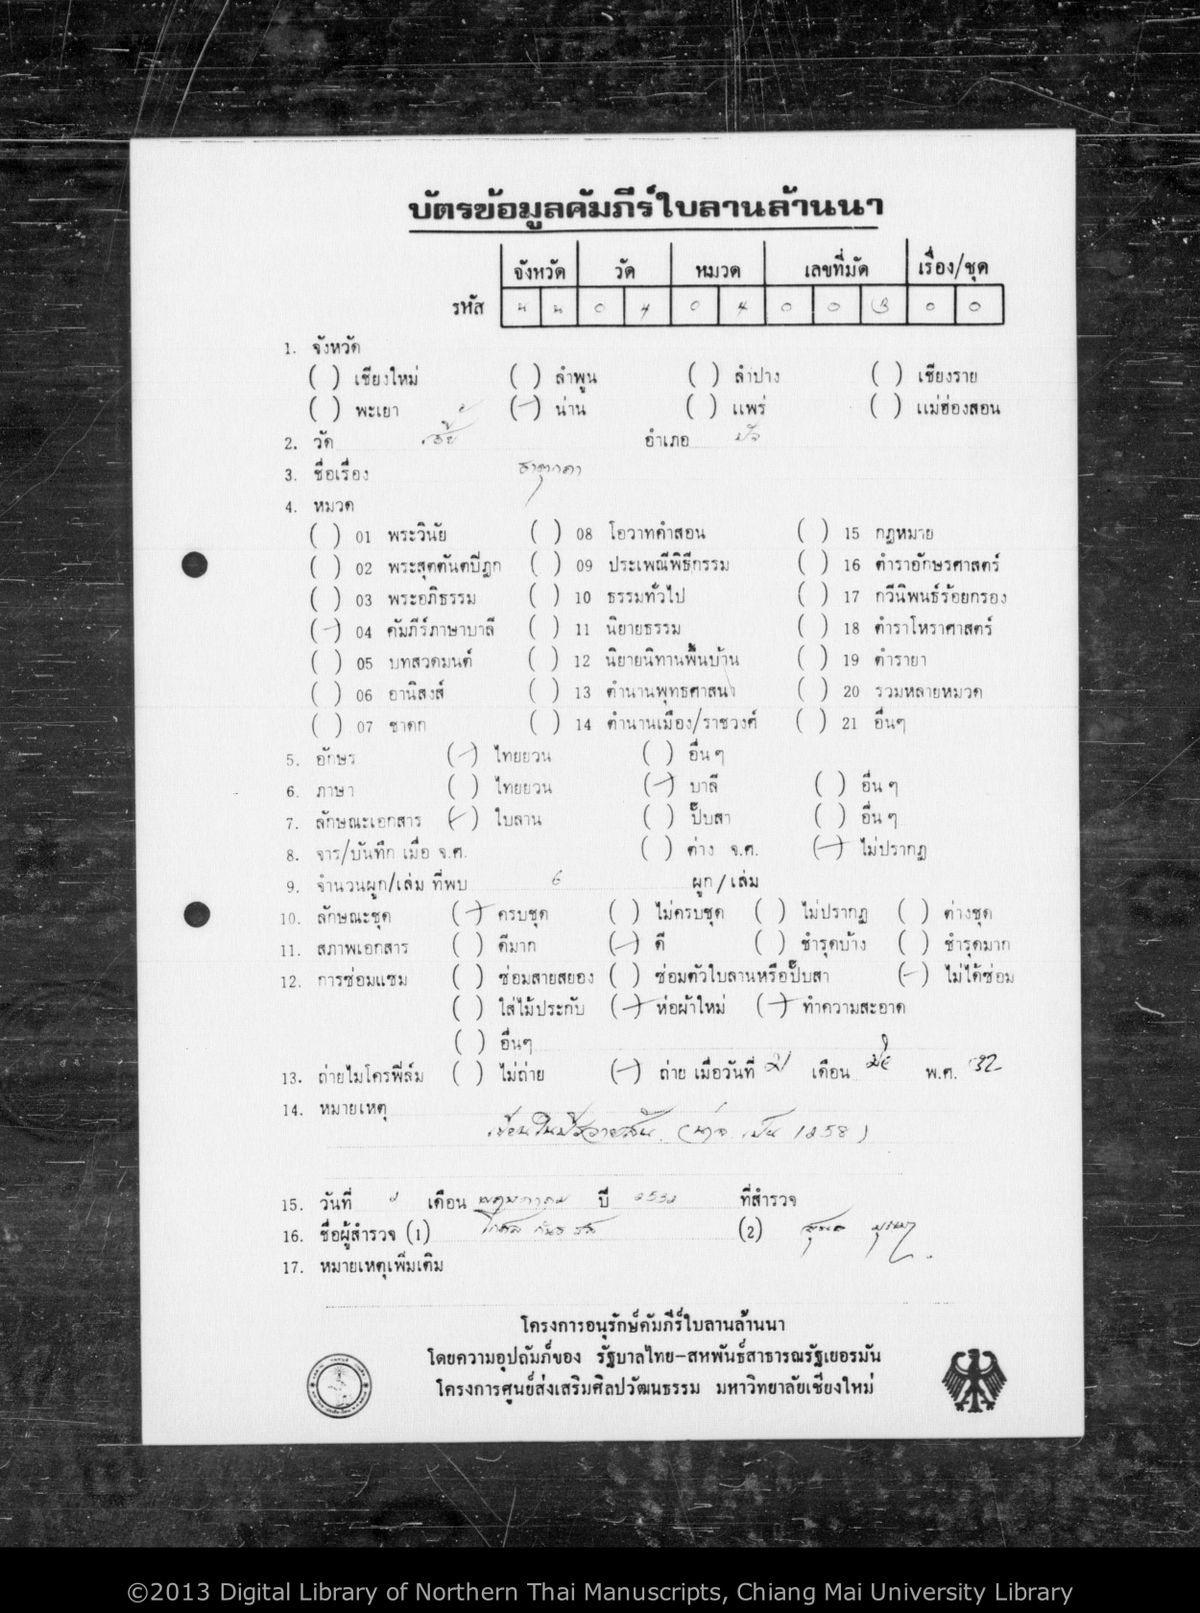 บัตรข้อมูลคัมภีร์ใบลานล้านนา
จังหวัด วัด หมวด เลขที่มัด เรื่อง/ชุด
รหัส น น 0 4 0 4 0 0 3 0 0
1. จังหวัด
( ) เชียงใหม่ ( ) ลำพูน ( ) ลำปาง ( ) เชียงราย
( ) พะเยา (-) น่าน ( ) แพร่ ( ) แม่ฮ่องสอน
2. วัด อำเภอ ปัว
3. ชื่อเรื่อง ธาตุกถา
4. หมวด
( ) 01 พระวินัย ( ) 08 โอวาทคำสอน ( ) 15 กฎหมาย
( ) 02 พระสุตตันตปิฎก ( ) 09 ประเพณีพิธีกรรม ( ) 16 ตำราอักษรศาสตร์
( ) 03 พระอภิธรรม ( ) 10 ธรรมทั่วไป ( ) 17 กวีนิพนธ์ร้อยกรอง
(-) 04 คัมภีร์ภาษาบาลี ( ) 11 นิยายธรรม ( ) 18 ตำราโหราศาสตร์
( ) 05 บทสวดมนต์ ( ) 12 นิยายนิทานพื้นบ้าน ( ) 19 ตำรายา
( ) 06 อานิสงส์ ( ) 13 ตำนานพุทธศาสนา ( ) 20 รวมหลายหมวด
( ) 07 ชาดก ( ) 14 ตำนานเมือง/ราชวงศ์ ( ) 21 อื่นๆ
5. อักษร (-) ไทยยวน ( ) อื่นๆ
6. ภาษา ( ) ไทยยวน (-) บาลี ( ) อื่นๆ
7. ลักษณะเอกสาร (-) ใบลาน ( ) ปั๊บสา ( ) อื่นๆ
8. จาร/บันทึก เมื่อ จ.ศ. ( ) ต่าง จ.ศ. (-) ไม่ปรากฏ
9. จำนวนผูก/เล่ม ที่พบ 6 ผูก/เล่ม
10. ลักษณะชุด (-) ครบชุด ( ) ไม่ครบชุด ( ) ไม่ปรากฏ ( ) ต่างชุด
11. สภาพเอกสาร ( ) ดีมาก (-) ดี ( ) ชำรุดบ้าง ( ) ชำรุดมาก
12. การซ่อมแซม ( ) ซ่อมสายสยอง ( ) ซ่อมตัวใบลานหรือปั๊บสา (-) ไม่ได้ซ่อม
( ) ใส่ไม้ประกับ (-) ห่อผ้าใหม่ (-) ทำความสะอาด
( ) อื่นๆ
13. ถ่ายไมโครฟิล์ม ( ) ไม่ถ่าย (-) ถ่าย เมื่อวันที่ เดือน พ.ศ. 32
14. หมายเหตุ
(น่าจะ เป็น 1258)
15. วันที่ ๒ เดือน พฤษภาคม ปี ๒532 ที่สำรวจ
16. ชื่อผู้สำรวจ (1) (2)
17. หมายเหตุเพิ่มเติม
โครงการอนุรักษ์คัมภีร์ใบลานล้านนา
โดยความอุปถัมภ์ของ รัฐบาลไทย-สหพันธ์สาธารณรัฐเยอรมัน
โครงการศูนย์ส่งเสริมศิลปวัฒนธรรม มหาวิทยาลัยเชียงใหม่
©2013 Digital Library of Northern Thai Manuscripts, Chiang Mai University Library